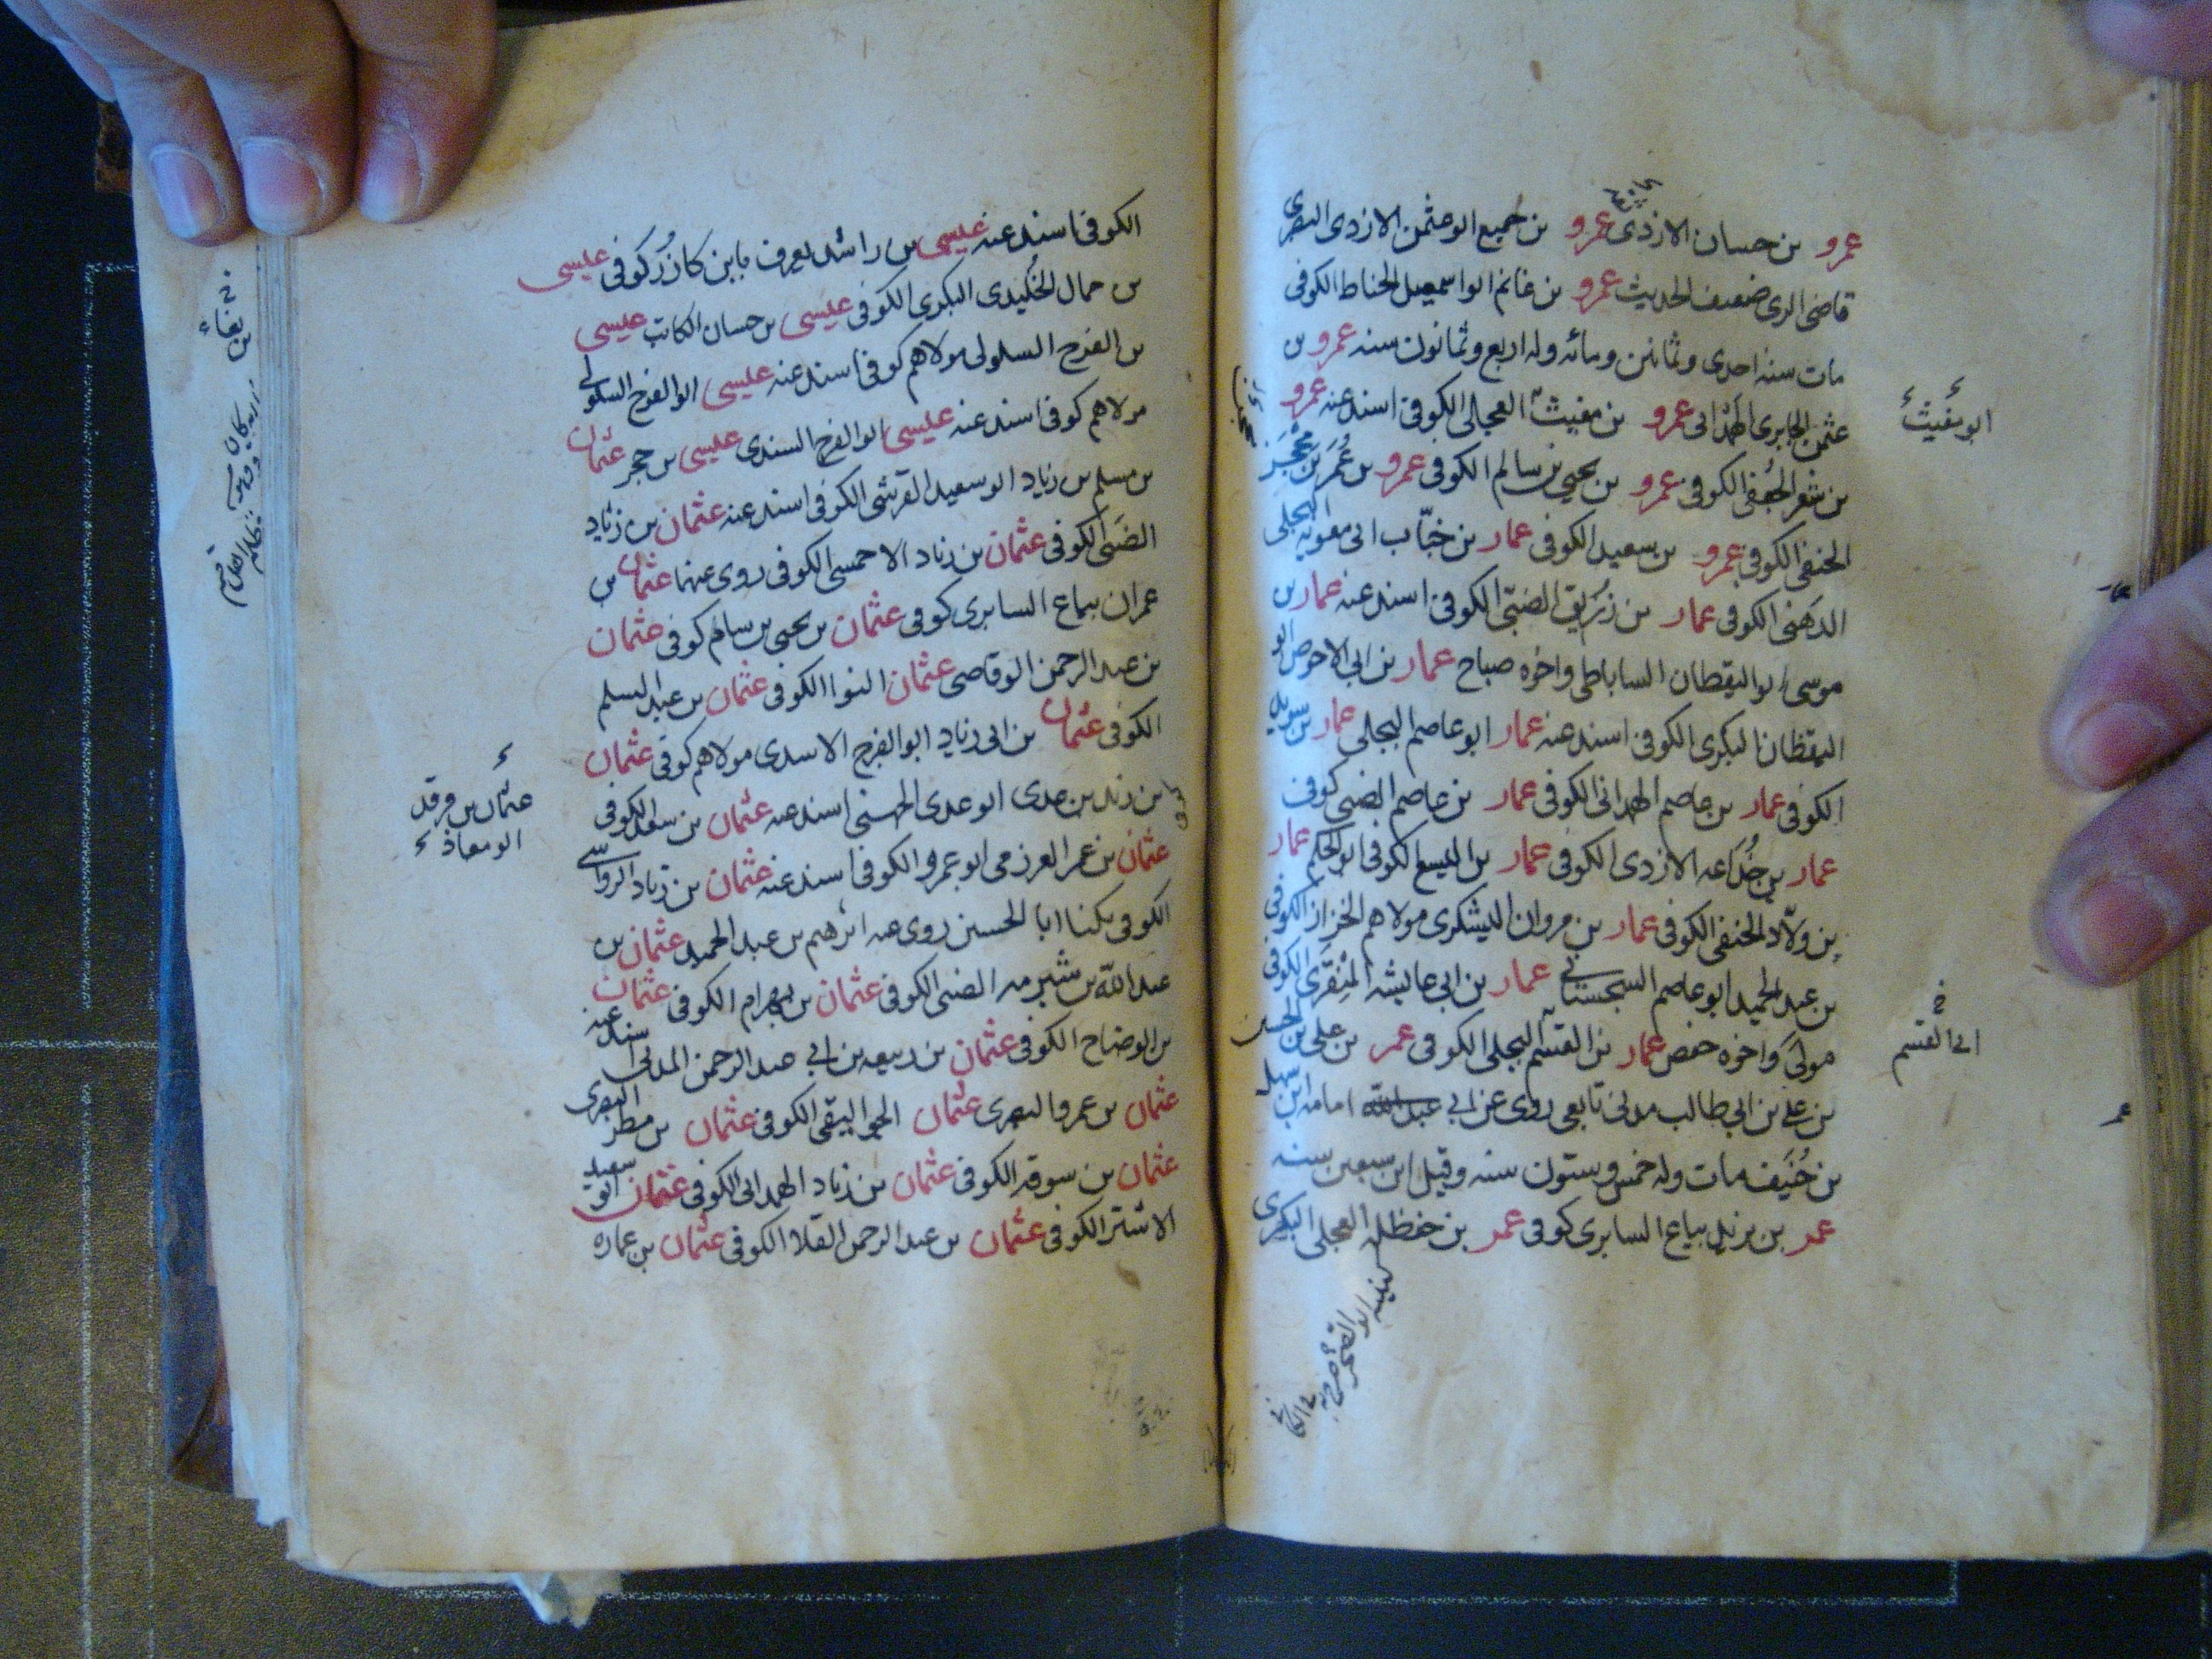 عمرو بن حسان الازدى عمرو بن جميع ابو عثمن الازدى البصرى
قاضى الرى ضعيف الحديث عمرو بن غانم ابو اسمعيل الحناط الكوفى
مات سنه احدى وثمانين ومائه وله اربع وثمانون سنه عمرو بن
عثمن الجابرى الهمدانى عمرو بن مغيث العجلى الكوفى اسند عنه عمرو
بن شمر الجعفى الكوفى عمرو بن يحيى بن سالم الكوفى عمرو بن عمر بن محجن
الحنفى الكوفى عمرو بن سعيد الكوفى عمار بن خباب ابى معويه البجلى
الدهنى الكوفى عمار بن زريق الضبى الكوفى اسند عنه عمار بن
موسى ابو اليقظان الساباطى واخوه صباح عمار بن ابى الاحوص ابو
اليقظان البكرى الكوفى اسند عنه عمار ابو عاصم البجلى عمار بن سويد
الكوفى عمار بن عاصم الهمدانى الكوفى عمار بن عاصم الضبى كوفى
عمار بن جذاعه الازدى الكوفى عمار بن اليسع الكوفى ابو الحكم عمار
بن ولاد الحنفى الكوفى عمار بن مروان اليشكرى مولاهم الخزاز الكوفى
بن عبد الحميد ابو عاصم السجستانى عمار بن ابى عايشه المنقرى الكوفى
مولى واخوه حفص عمار بن القسم البجلى الكوفى عمر بن على بن الحسين
بن على بن ابى طالب مدنى تابعى روى عن ابى عبد الله امامه ابن سهل
بن حنيف مات وله خمس وستون سنه وقيل ابن سبعين سنه
عمر بن يزيد بياع السابرى كوفى عمر بن حنظله العجلى البكرى
ابو مغيث
ابى القسم
الكوفى اسند عنه عيسى بن راشد يعرف بابن كازر كوفى عيسى
بن حمال الجنيدى البكرى الكوفى عيسى بن حسان الكاتب عيسى
بن الفرج السلولى مولاهم كوفى اسند عنه عيسى ابو الفرج السلولى
مولاهم كوفى اسند عنه عيسى ابو الفرج السندى عيسى بن حجر عثمان
بن مسلم بن زياد ابو سعيد القرشى الكوفى اسند عنه عثمان بن زياد
الضبى الكوفى عثمان بن زياد الاحمسى الكوفى روى عنهما عثمان بن
عمران بياع السابرى كوفى عثمان بن يحيى بن سالم كوفى عثمان
بن عبد الرحمن الوقاصى عثمان النوا الكوفى عثمان بن عبد السلم
الكوفى عثمان بن ابى زياد ابو الفرج الاسدى مولاهم كوفى عثمان
بن زيد بن عدى ابو عدى الجهنى اسند عنه عثمان بن سعد الكوفى
عثمان بن عمر العرزمى ابو عمرو الكوفى اسند عنه عثمان بن زياد الرواسى
الكوفى يكنا ابا الحسين روى عنه ابرهيم بن عبد الحميد عثمان بن
عبد الله بن شبرمه الضبى الكوفى عثمان بن بهرام الكوفى عثمان
بن الوضاح الكوفى عثمان بن ربيعه بن ابى عبد الرحمن المدنى اسند عنه
عثمان بن عمرو البصرى عثمان الحوالبقى الكوفى عثمان بن مطر البصرى
عثمان بن سوقه الكوفى عثمان بن زياد الهمدانى الكوفى عثمان ابو سعيد
الاشتر الكوفى عثمان بن عبد الرحمن القلا الكوفى عثمان بن عماره
عثمان بن فرقد
ابو معاذ